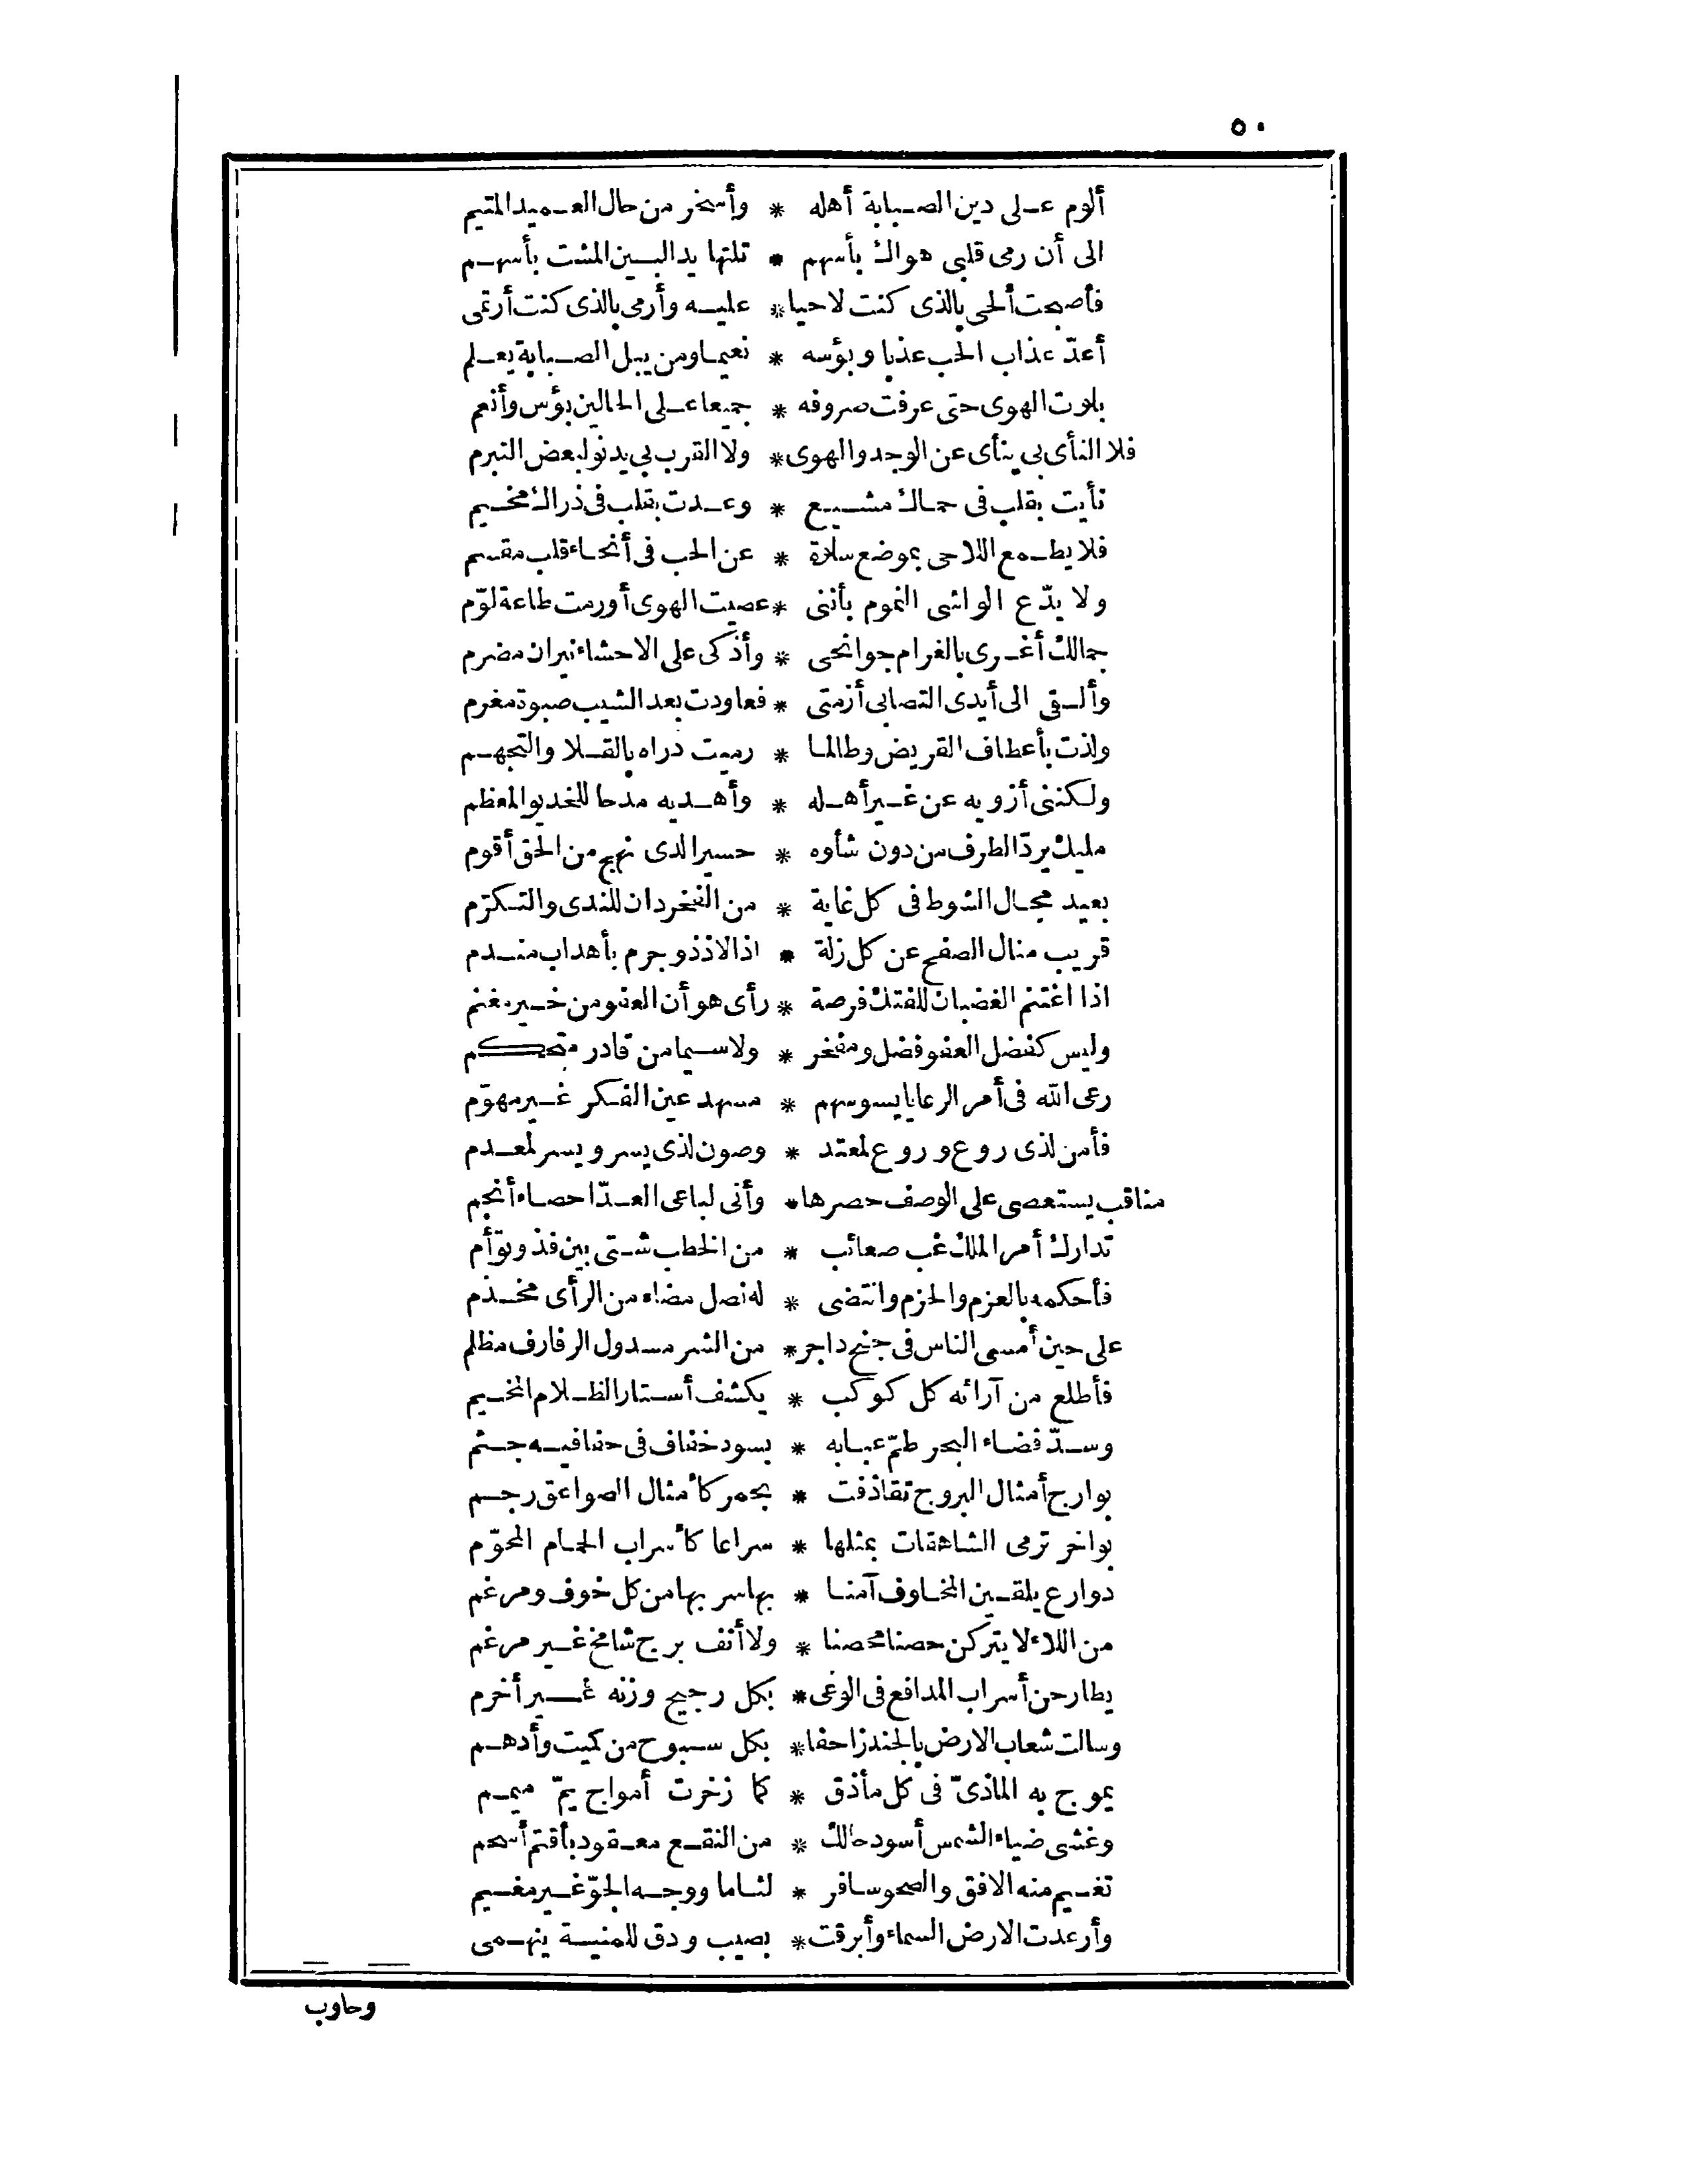 ٥٠
ألوم على دين الصبابة أهله * وأسخر من حال العميد المتيم
الى أن رمى قلبى هواك بأسهم * تلتها يد البين المشت بأسهم
فأصبحت ألحى بالذى كنت لاحيا * عليه وأرمى بالذى كنت أرتمى
أعدّ عذاب الحب عذبا وبؤسه * نعيما ومن يبل الصبابة يعلم
بلوت الهوى حتى عرفت صروفه * جميعا على الحالين بؤس وأنعم
فلا النأى بى ينأى عن الوجد والهوى * ولا القرب بى يدنو لبعض التبرم
نأيت بقلب فى حماك مشيع * وعدت بقلب فى ذراك مخيم
فلا يطمع اللاحى بموضع سلوة * عن الحب فى أنحاء قلب مقسم
ولا يدّع الواشى النموم بأننى * عصيت الهوى أو رمت طاعة لوّم
جمالك أغرى بالغرام جوانحى * وأذكى على الاحشاء نيران مضرم
وألقى الى أيدى التصابى أزمتى * فعاودت بعد الشيب صبوة مغرم
ولذت بأعطاف القريض وطالما * رميت دراه بالقلا والتجهم
ولكننى أزويه عن غير أهله * وأهديه مدحا للخديو المعظم
مليك يردّ الطرف من دون شأوه * حسيرا لدى نهج من الحق أقوم
بعيد مجال الشوط فى كل غاية * من الفخر دان للندى والتكرّم
قريب منال الصفح عن كل زلة * اذا لاذ ذو جرم بأهداب مندم
اذا اغتنم الغضبان للفتك فرصة * رأى هو أن العفو من خير مغنم
وليس كفضل العفو فضل ومفخر * ولا سيما من قادر متحكم
رعى الله فى أمر الرعايا يسوسهم * مسهد عين الفكر غير مهوّم
فأمن لذى روع وروع لمعتد * وصون لذى يسر ويسر لمعدم
مناقب يستعصى على الوصف حصرها * وأنى لباعى العدّ احصاء أنجم
تدارك أمر الملك غب صعائب * من الخطب شتى بين فذ وتوّأم
فأحكمه بالعزم والحزم وانتضى * له نصل مضاء من الرأى مخذم
على حين أمسى الناس فى جنح داجر * من الشر مسدول الرفارف مظلم
فأطلع من آرائه كل كوكب * يكشف أستار الظلام المخيم
وسدّ فضاء البحر طمّ عبابه * بسود خفاف فى حفافيه جثم
بوارج أمثال البروج تقاذفت * بحمر كأمثال الصواعق رجم
بواخر ترمى الشاهقات بمثلها * سراعا كأسراب الحمام المحوّم
دوارع يلقين المخاوف آمنا * بها سربها من كل خوف ومرغم
من اللاء لا يتركن حصنا محصنا * ولا أنف برج شامخ غير مرغم
يطارحن أسراب المدافع فى الوغى * بكل رجيح وزنه غير أخرم
وسالت شعاب الارض بالجند زاحفا * بكل سبوح من كميت وأدهم
يموج به الماذىّ فى كل مأذق * كما زخرت أمواج يمّ ميمم
وغشى ضياء الشمس أسود حالك * من النقع معقود بأقتم أسحم
تغيم منه الافق والصحو سافر * لثاما ووجه الجوّ غير مغيم
وأرعدت الارض السماء وأبرقت * بصيب ودق للمنية ينهمى
وحاوب